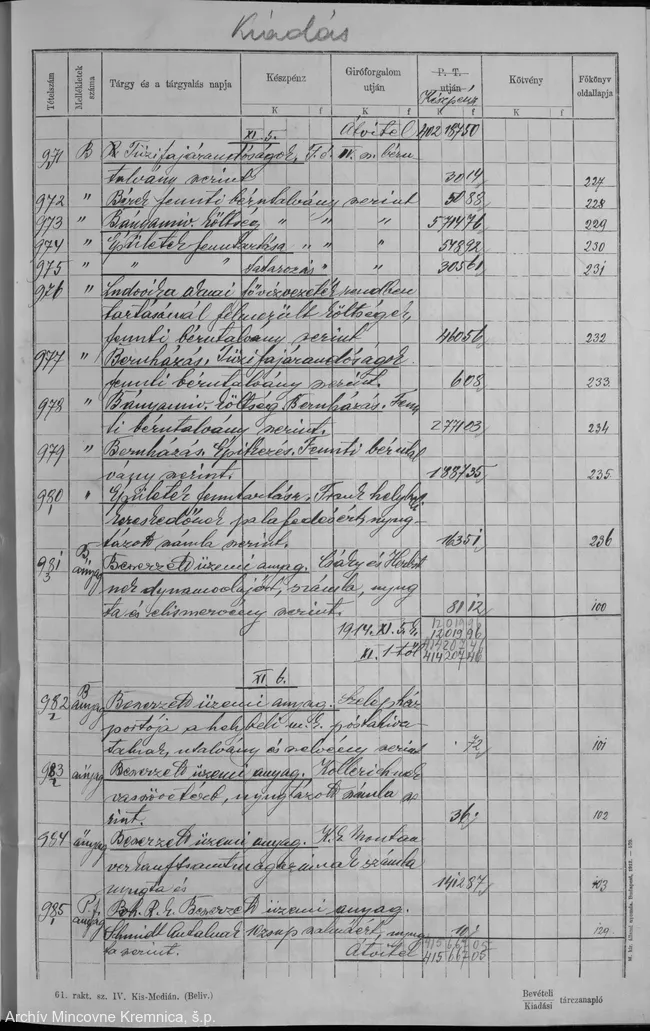 Kiadás
Tételszám
Mellékletek száma
Tárgy és a tárgyalás napja
Készpénz
Giróforgalom utján
P. T. utján
Készpénz
Kötvény
Főkönyv oldallapja
K f K f K f K f
XI. 5. Átvitel 402187 50
971 B Tüzifajárandóságok, T. é. III. n. béru-
talvány szerint 30 14 227
972 " Bérek fennti bérutalvány szerint 50 88 228
973 " Bányamiv. költség " " " 5714 76 229
974 " Épületek fenntartása " " " 578 92 230
975 " " " tatarozás " " 305 61 231
976 " Ludovika aknai fővizvezeték rendben
tartásánál felmerült költségek,
fennti bérutalvány szerint 460 56 232
977 " Bernházás. Tüzifajárandóságok
fennti bérutalvány szerint. 6 08 233
978 " Bányamiv. költség. Bernházás. Fenn-
ti bérutalvány szerint. 2771 03 234
979 " Bernházás. Építkezés. Fennti bérutal
vány szerint. 1887 35 235
980 " Épületek fenntartása. Frank helybeli
kereskedőnek palafedőért, nyug-
tázott számla szerint. 163 51 236
981 B anyag Beszerzett üzemi anyag. Csáky és
nek dynamoolajért, számla, nyug
ta és elismervény szerint. 81 12 100
1914. XI. 5. É. 12019 96
12019 96
XI. 1-től 414207 46
414207 46
XI 6.
982 B anyag Beszerzett üzemi anyag.
portója a helybeli m. k. postahiva-
talnak, utalvány és szelvény szerint 72 101
983 anyag Beszerzett üzemi anyag. Kollerichnek
vasszövetért, nyugtázott számla sze-
rint. 36 102
984 anyag Beszerzett üzemi anyag. K. k. Montan
verkaufsamt magazinnak számla
nyugta és 1412 87 103
985 P. f. anyag Beszerzett üzemi anyag.
Schmidt Antalnak nyug
ta szerint. 10 129
Átvitel 415667 05
415667 05
61. rakt. sz. IV. Kis-Medián. (Beliv.)
Bevételi
Kiadási tárczanapló
M. kir. állami nyomda. Budapest, 1912.
Archív Mincovne Kremnica, š.p.